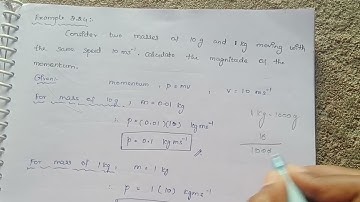 Example 3.24:-
Consider two masses of 10 g and 1 kg moving with
the same speed 10 ms⁻¹. calculate the magnitude of the
momentum.
Given:- momentum, p = mv , v = 10 ms⁻¹
For mass of 10g, m = 0.01 kg
∴ p = (0.01)(10) kg ms⁻¹
p = 0.1 kg ms⁻¹
For mass of 1 kg, m = 1 kg
∴ p = 1 (10) kg ms⁻¹
1 kg = 1000 g
10
1000